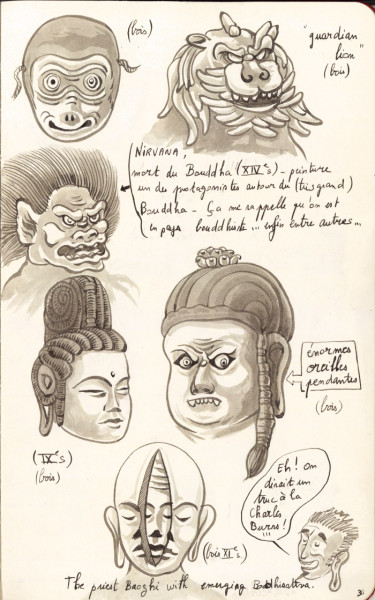 (bois)
"guardian
lion"
(bois)
NIRVANA,
mort du Bouddha (XIVe s) - peinture
un des protagonistes autour du (très grand)
Bouddha - Ça me rappelle qu'on est
en pays bouddhiste... enfin entre autres...
énormes
oreilles
pendantes
(bois)
(IXe s)
(bois)
Eh! on
dirait un
truc à la
Charles
Burns!
...
(bois XIe s)
The priest Baozhi with emerging Bodhisattva.